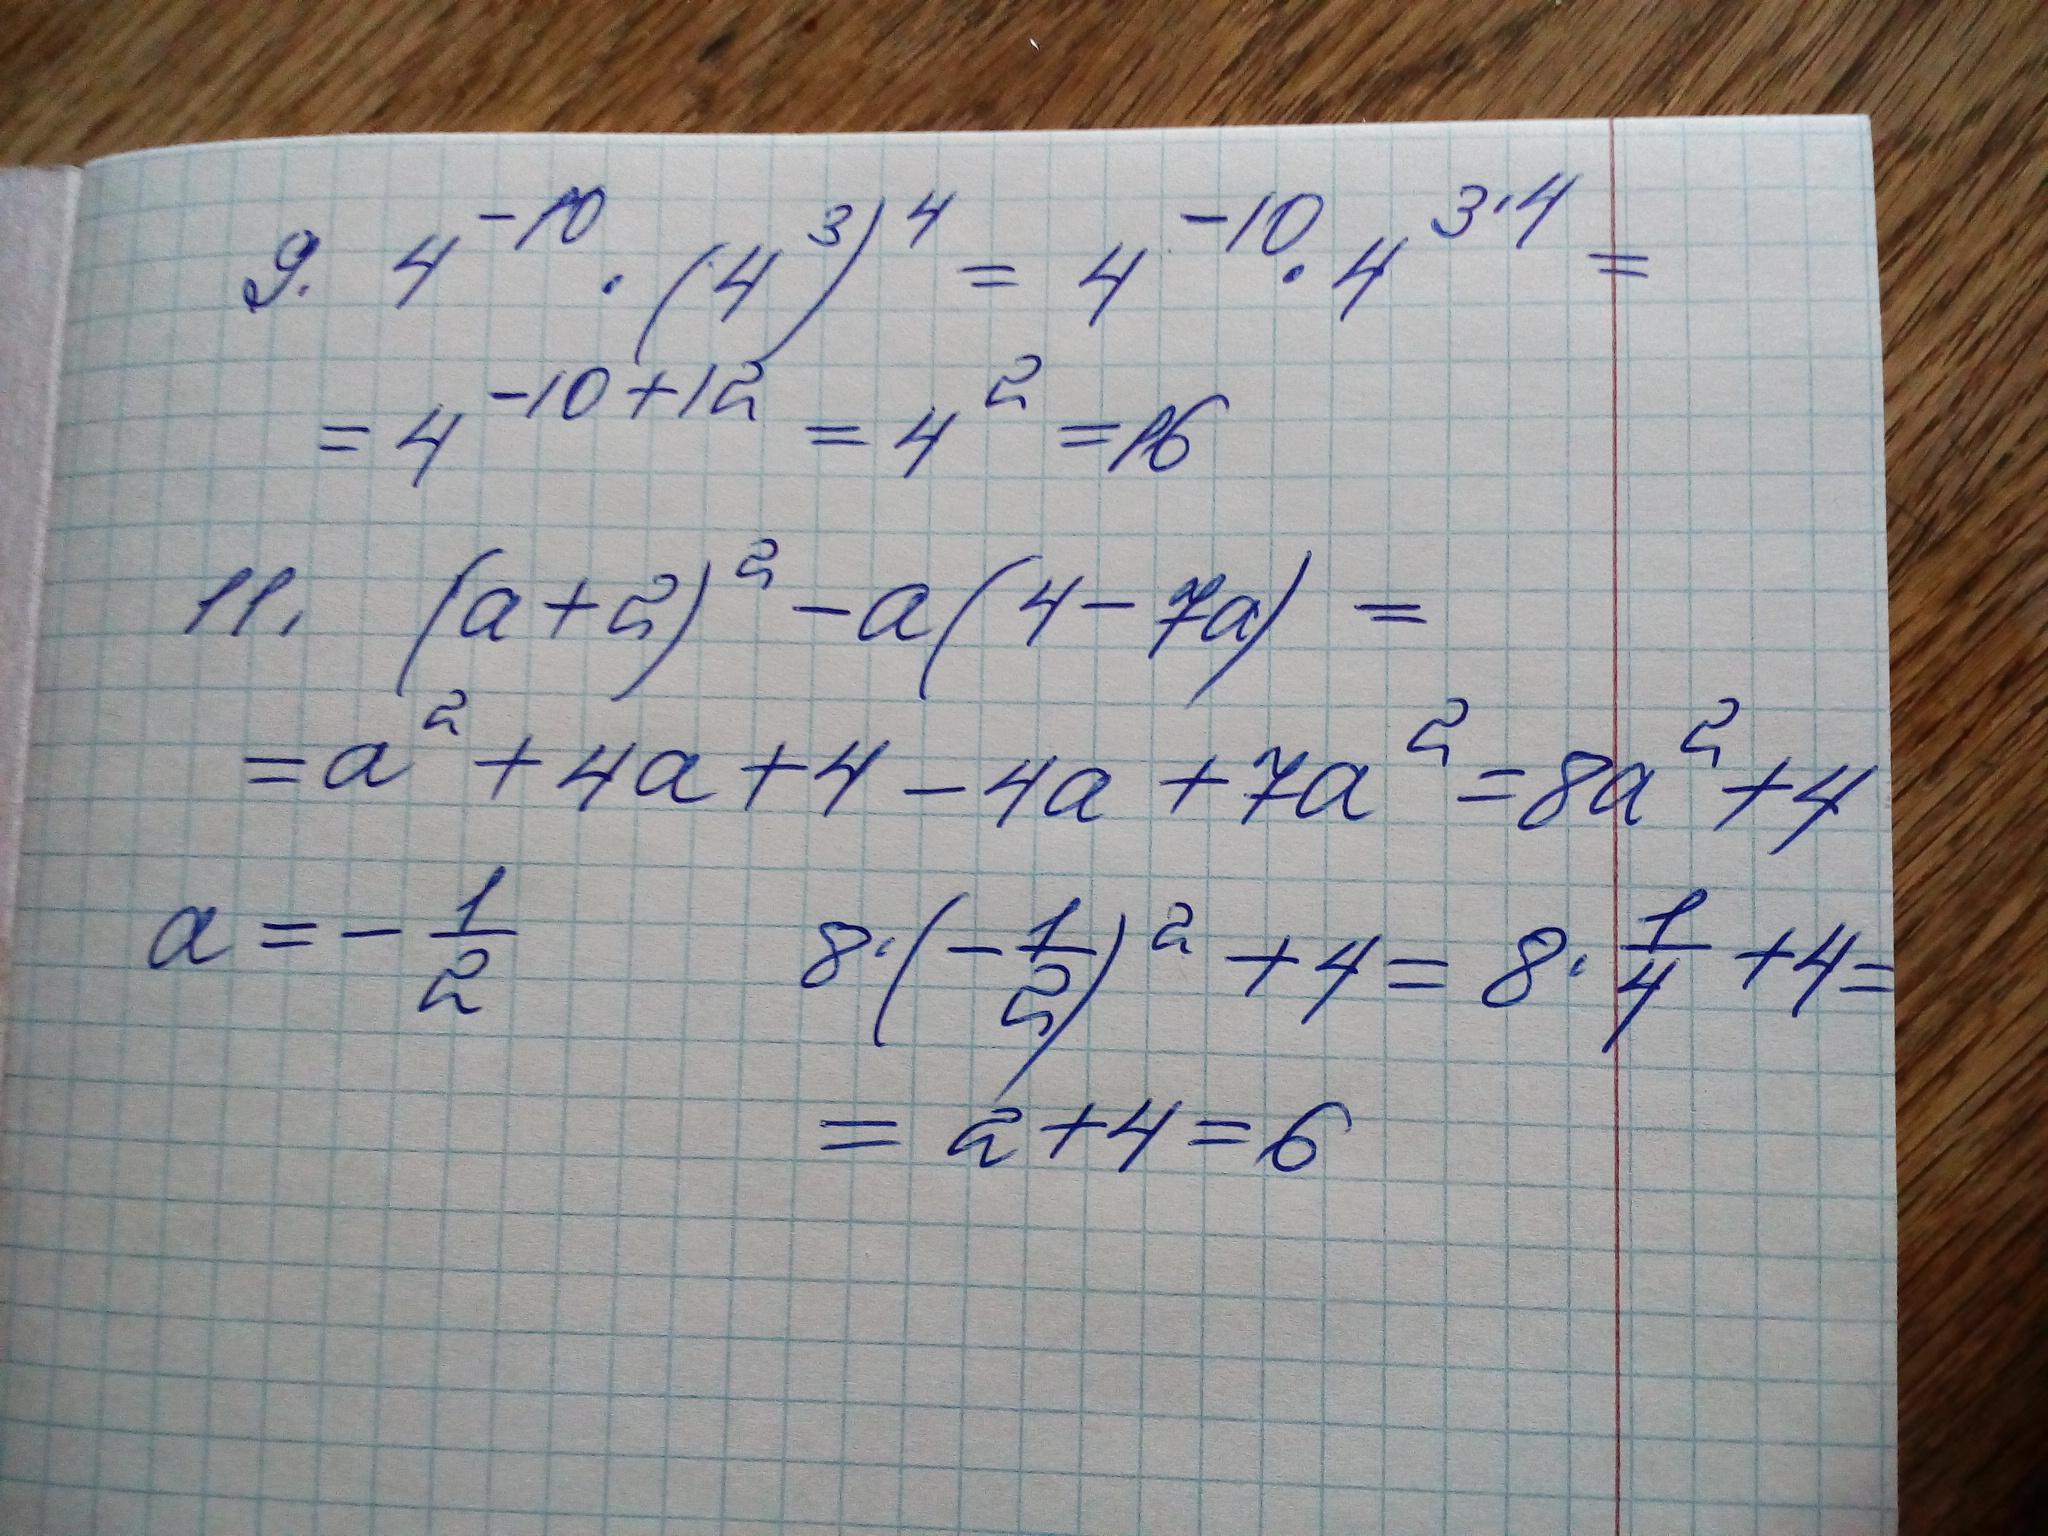 9. 4^{-10} · (4^3)^4 = 4^{-10} · 4^{3·4} =
= 4^{-10+12} = 4^2 = 16
11. (a+2)^2 - a(4-7a) =
= a^2 + 4a + 4 - 4a + 7a^2 = 8a^2 + 4
a = -\frac{1}{2} 8·(-\frac{1}{2})^2 + 4 = 8·\frac{1}{4} + 4 =
= 2 + 4 = 6